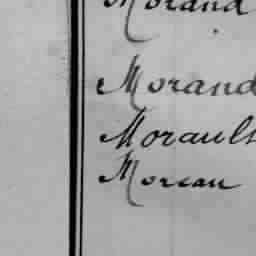 Morand
Morand
Morault
Moreau